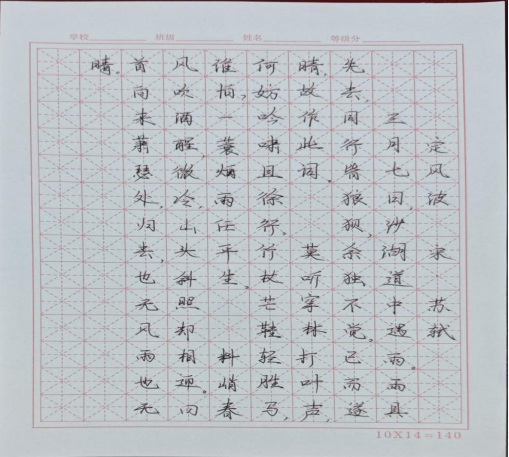 学校 班级 姓名 等级分
定风波 宋·苏轼
三月七日,沙湖道中遇雨。雨具
先去,同行皆狼狈,余独不觉。已而遂
晴,故作此词。 莫听穿林打叶声,
何妨吟啸且徐行。竹杖芒鞋轻胜马,
谁怕,一蓑烟雨任平生。 料峭春
风吹酒醒,微冷,山头斜照却相迎。回
首向来萧瑟处,归去,也无风雨也无
晴。
10X14=140